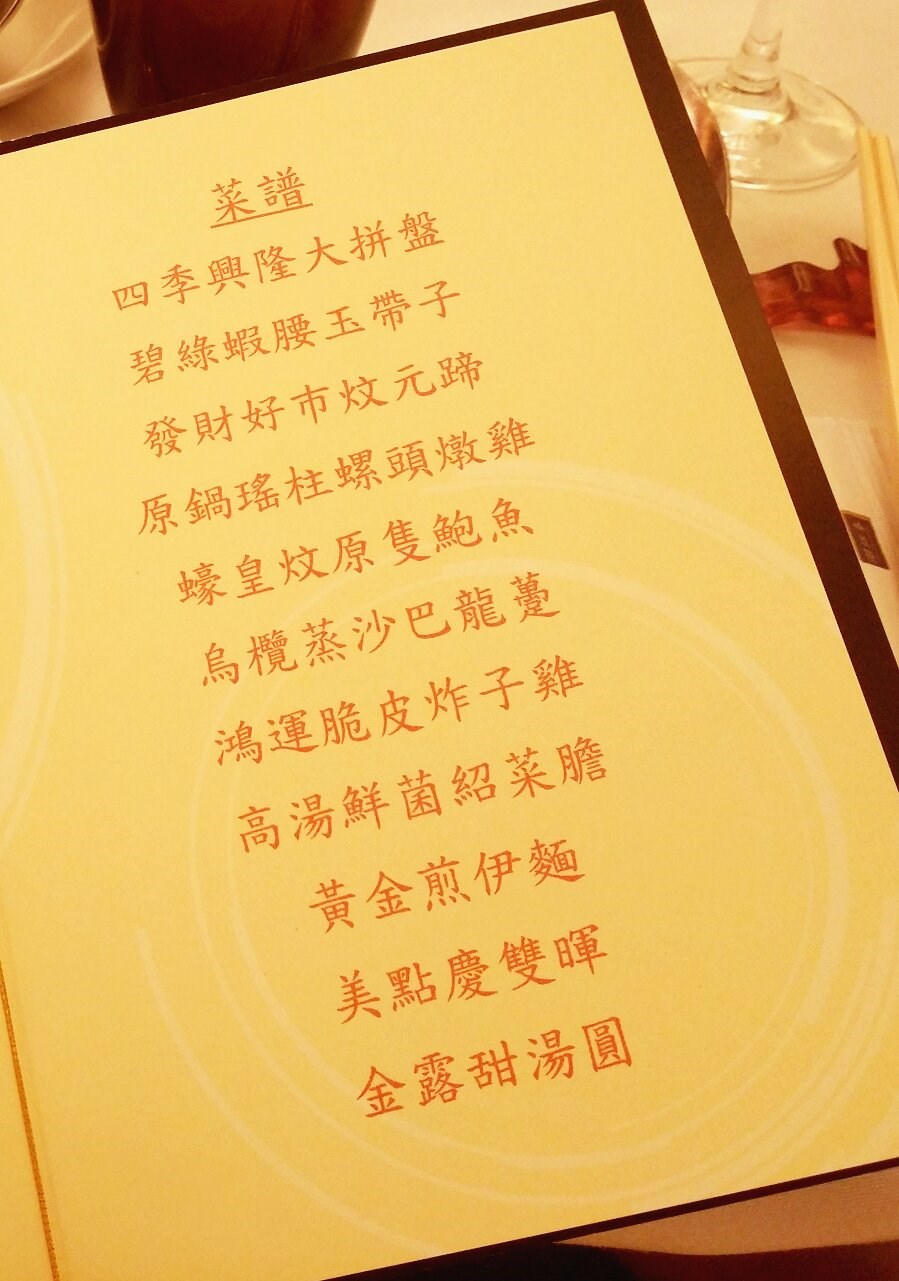 菜譜
四季興隆大拼盤
碧綠蝦腰玉帶子
發財好市炆元蹄
原鍋瑤柱螺頭燉雞
蠔皇炆原隻鮑魚
烏欖蒸沙巴龍躉
鴻運脆皮炸子雞
高湯鮮菌紹菜膽
黃金煎伊麵
美點慶雙暉
金露甜湯圓